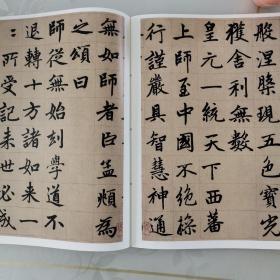 般涅槃現五色寶光
獲舍利無數
皇元一統天下西蕃
上師至中國不絕操
行謹嚴具智慧神通
無如師者臣孟頫為
之頌曰
師從無始劫學道不
退轉十方諸如来一
〻所受記来世必成